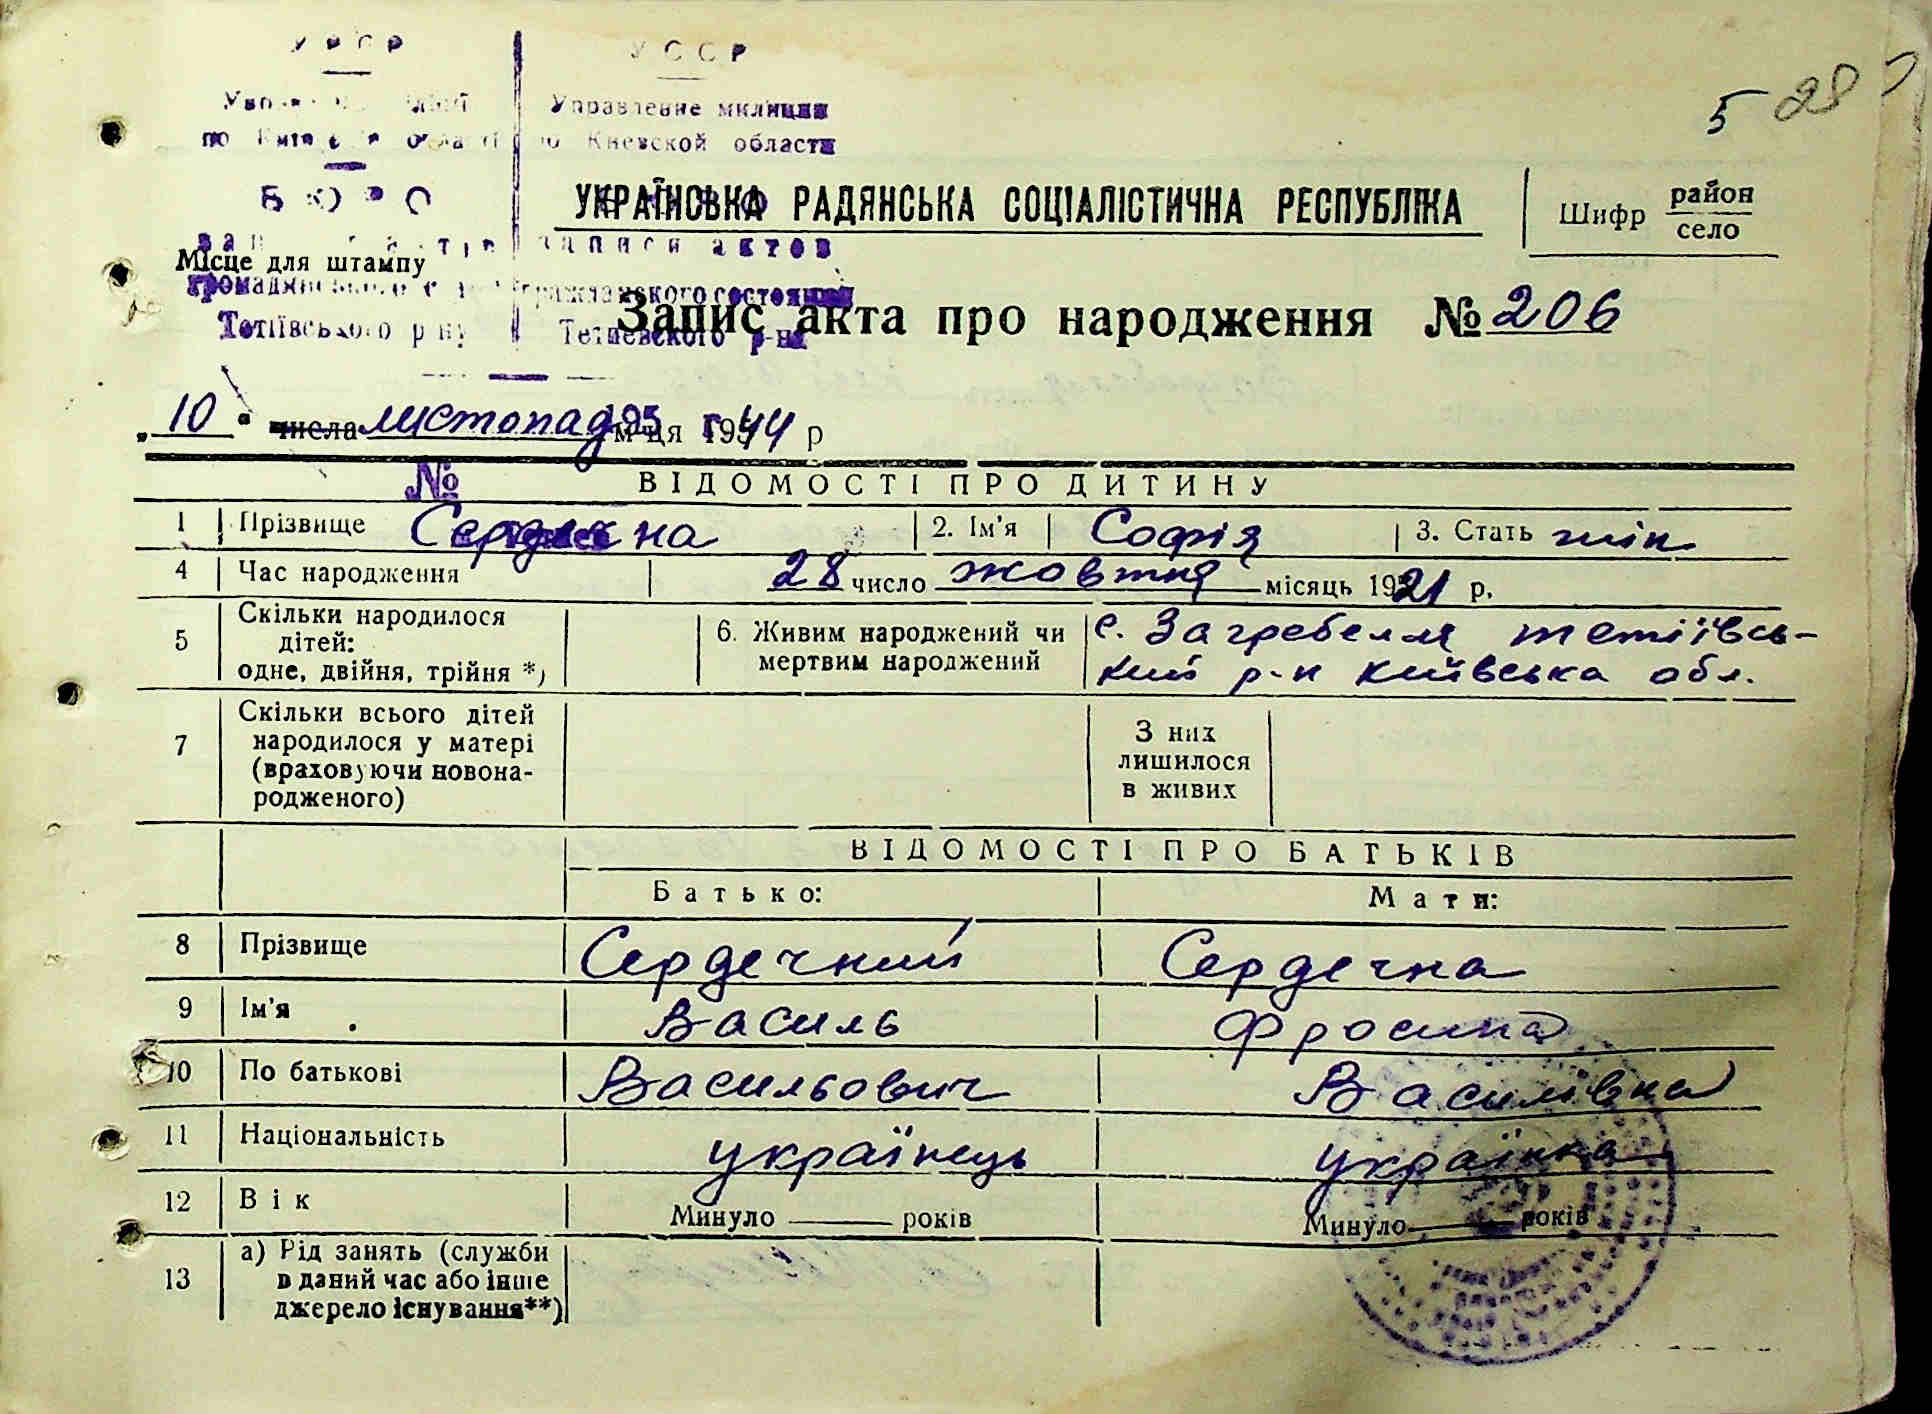 УССР
Управление милиции
по Киевской области
БЮРО
записи актов
гражданского состояния
Тетіївського р ну
Тетиевского р-на
5 28
УКРАЇНСЬКА РАДЯНСЬКА СОЦІАЛІСТИЧНА РЕСПУБЛІКА
Шифр район
село
Місце для штампу
Запис акта про народження № 206
„10" числа листопад м-ця 1944 р
195 г.
№
ВІДОМОСТІ ПРО ДИТИНУ
1 Прізвище Сердечна 2. Ім'я Софія 3. Стать жін
4 Час народження 28 число жовтня місяць 1921 р.
5 Скільки народилося
дітей:
одне, двійня, трійня *)
6. Живим народжений чи
мертвим народжений
с. Загребелля тетіївсь-
кий р-н київська обл.
7 Скільки всього дітей
народилося у матері
(враховуючи новона-
родженого)
З них
лишилося
в живих
ВІДОМОСТІ ПРО БАТЬКІВ
Батько: Мати:
8 Прізвище Сердечний Сердечна
9 Ім'я Василь Фросина
10 По батькові Васильович Василівна
11 Національність українець українка
12 Вік Минуло років Минуло років
13 а) Рід занять (служби
в даний час або інше
джерело існування**)